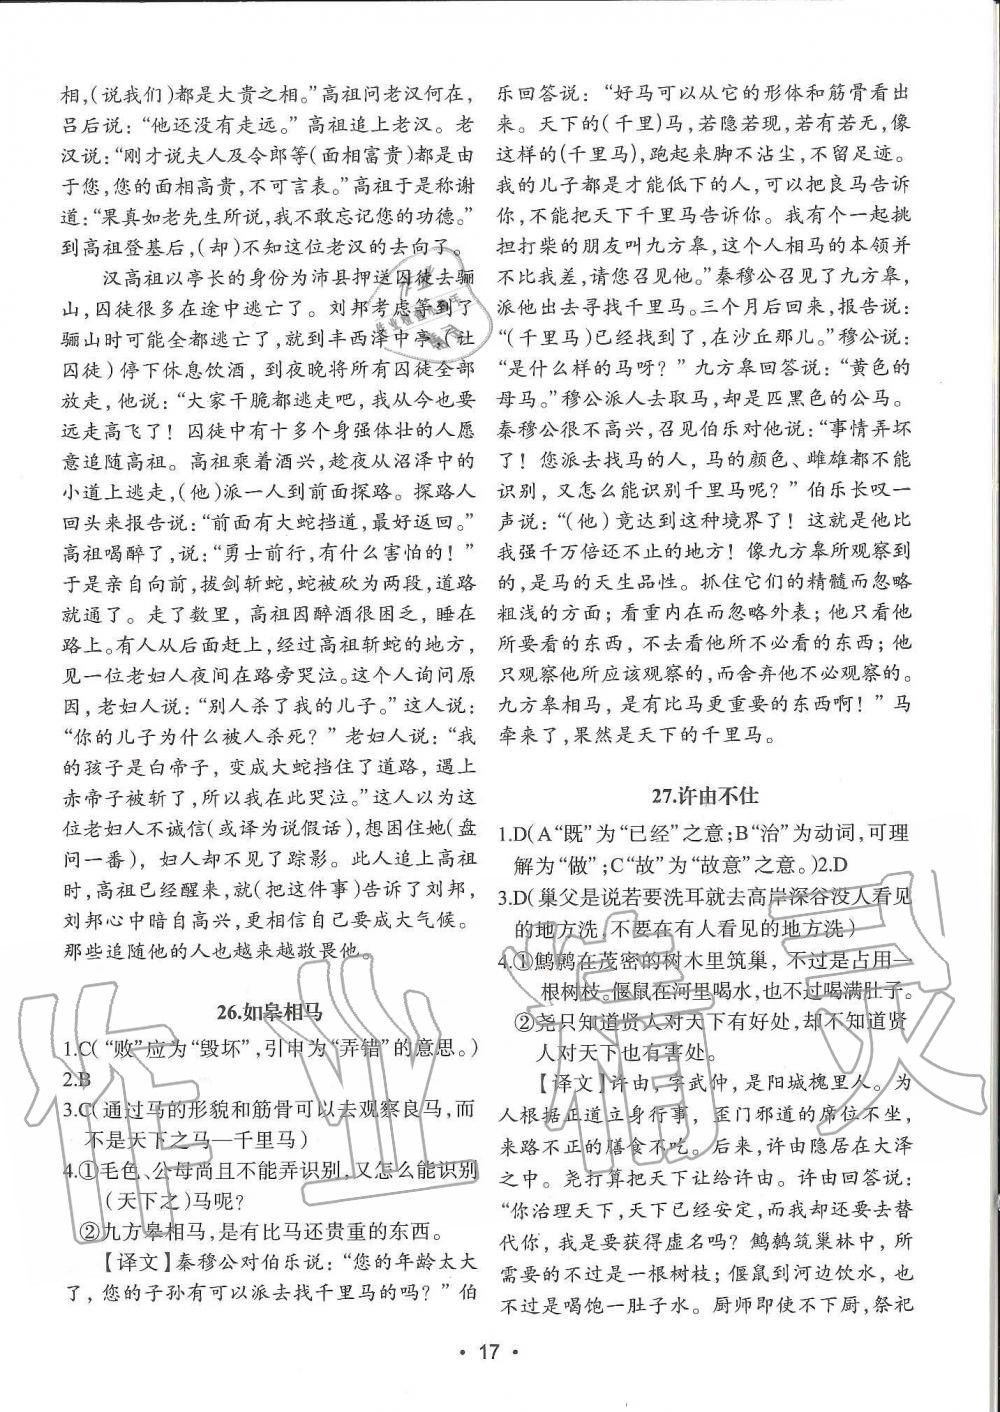 相,(说我们)都是大贵之相。”高祖问老汉何在,
吕后说：“他还没有走远。”高祖追上老汉。老
汉说：“刚才说夫人及令郎等(面相富贵)都是由
于您,您的面相高贵,不可言表。”高祖于是称谢
道：“果真如老先生所说,我不敢忘记您的功德。”
到高祖登基后,(却)不知这位老汉的去向了。
汉高祖以亭长的身份为沛县押送囚徒去骊
山,囚徒很多在途中逃亡了。刘邦考虑等到了
骊山时可能全都逃亡了,就到丰西泽中亭,(让
囚徒)停下休息饮酒,到夜晚将所有囚徒全部
放走,他说：“大家干脆都逃走吧,我从今也要
远走高飞了！囚徒中有十多个身强体壮的人愿
意追随高祖。高祖乘着酒兴,趁夜从沼泽中的
小道上逃走,(他)派一人到前面探路。探路人
回头来报告说：“前面有大蛇挡道,最好返回。”
高祖喝醉了,说：“勇士前行,有什么害怕的！”
于是亲自向前,拔剑斩蛇,蛇被砍为两段,道路
就通了。走了数里,高祖因醉酒很困乏,睡在
路上。有人从后面赶上,经过高祖斩蛇的地方,
见一位老妇人夜间在路旁哭泣。这个人询问原
因,老妇人说：“别人杀了我的儿子。”这人说：
“你的儿子为什么被人杀死？”老妇人说：“我
的孩子是白帝子,变成大蛇挡住了道路,遇上
赤帝子被斩了,所以我在此哭泣。”这人以为这
位老妇人不诚信(或译为说假话),想困住她(盘
问一番),妇人却不见了踪影。此人追上高祖
时,高祖已经醒来,就(把这件事)告诉了刘邦,
刘邦心中暗自高兴,更相信自己要成大气候。
那些追随他的人也越来越敬畏他。
26.如皋相马
1.C(“败”应为“毁坏”,引申为“弄错”的意思。)
2.B
3.C(通过马的形貌和筋骨可以去观察良马,而
不是天下之马—千里马)
4.①毛色、公母尚且不能弄识别,又怎么能识别
(天下之)马呢？
②九方皋相马,是有比马还贵重的东西。
【译文】秦穆公对伯乐说：“您的年龄太大
了,您的子孙有可以派去找千里马的吗？”伯
乐回答说：“好马可以从它的形体和筋骨看出
来。天下的(千里)马,若隐若现,若有若无,像
这样的(千里马),跑起来脚不沾尘,不留足迹。
我的儿子都是才能低下的人,可以把良马告诉
你,不能把天下千里马告诉你。我有个一起挑
担打柴的朋友叫九方皋,这个人相马的本领并
不比我差,请您召见他。”秦穆公召见了九方皋,
派他出去寻找千里马。三个月后回来,报告说：
“(千里马)已经找到了,在沙丘那儿。”穆公说：
“是什么样的马呀？”九方皋回答说：“黄色的
母马。”穆公派人去取马,却是匹黑色的公马。
秦穆公很不高兴,召见伯乐对他说：“事情弄坏
了！您派去找马的人,马的颜色、雌雄都不能
识别,又怎么能识别千里马呢？”伯乐长叹一
声说：“(他)竟达到这种境界了！这就是他比
我强千万倍还不止的地方！像九方皋所观察到
的,是马的天生品性。抓住它们的精髓而忽略
粗浅的方面；看重内在而忽略外表；他只看他
所要看的东西,不去看他所不必看的东西；他
只观察他所应该观察的,而舍弃他不必观察的。
九方皋相马,是有比马更重要的东西啊！”马
牵来了,果然是天下的千里马。
27.许由不仕
1.D(A“既”为“已经”之意；B“治”为动词,可理
解为“做”；C“故”为“故意”之意。)2.D
3.D(巢父是说若要洗耳就去高岸深谷没人看见
的地方洗,不要在有人看见的地方洗)
4.①鹪鹩在茂密的树木里筑巢,不过是占用一
根树枝。偃鼠在河里喝水,也不过喝满肚子。
②尧只知道贤人对天下有好处,却不知道贤
人对天下也有害处。
【译文】许由,字武仲,是阳城槐里人。为
人根据正道立身行事,歪门邪道的席位不坐,
来路不正的膳食不吃。后来,许由隐居在大泽
之中。尧打算把天下让给许由。许由回答说：
“你治理天下,天下已经安定,而我却要去替
代你,我是要获得虚名吗？鹪鹩筑巢林中,所
需要的不过是一根树枝；偃鼠到河边饮水,也
不过是喝饱一肚子水。厨师即使不下厨,祭祀
• 17 •
作业精灵